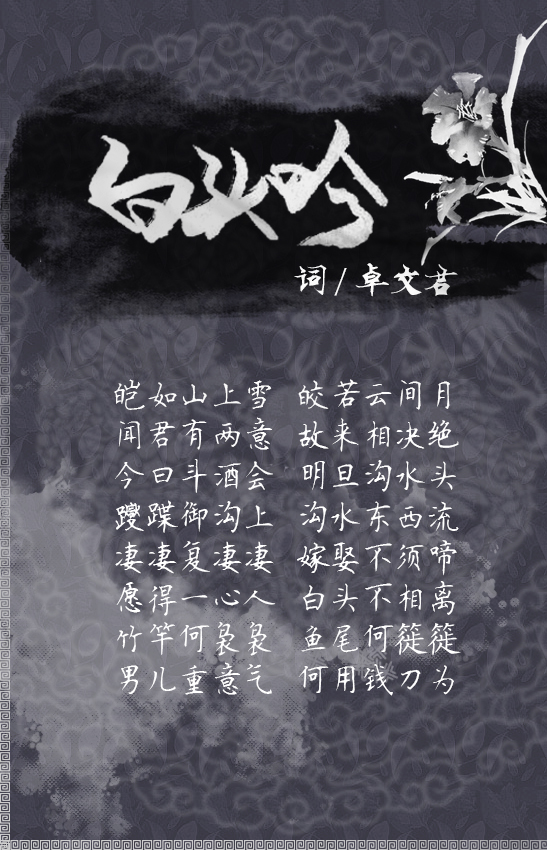 白头吟
词/卓文君
皑如山上雪 皎若云间月
闻君有两意 故来相决绝
今日斗酒会 明旦沟水头
躞蹀御沟上 沟水东西流
凄凄复凄凄 嫁娶不须啼
愿得一心人 白头不相离
竹竿何袅袅 鱼尾何簁簁
男儿重意气 何用钱刀为